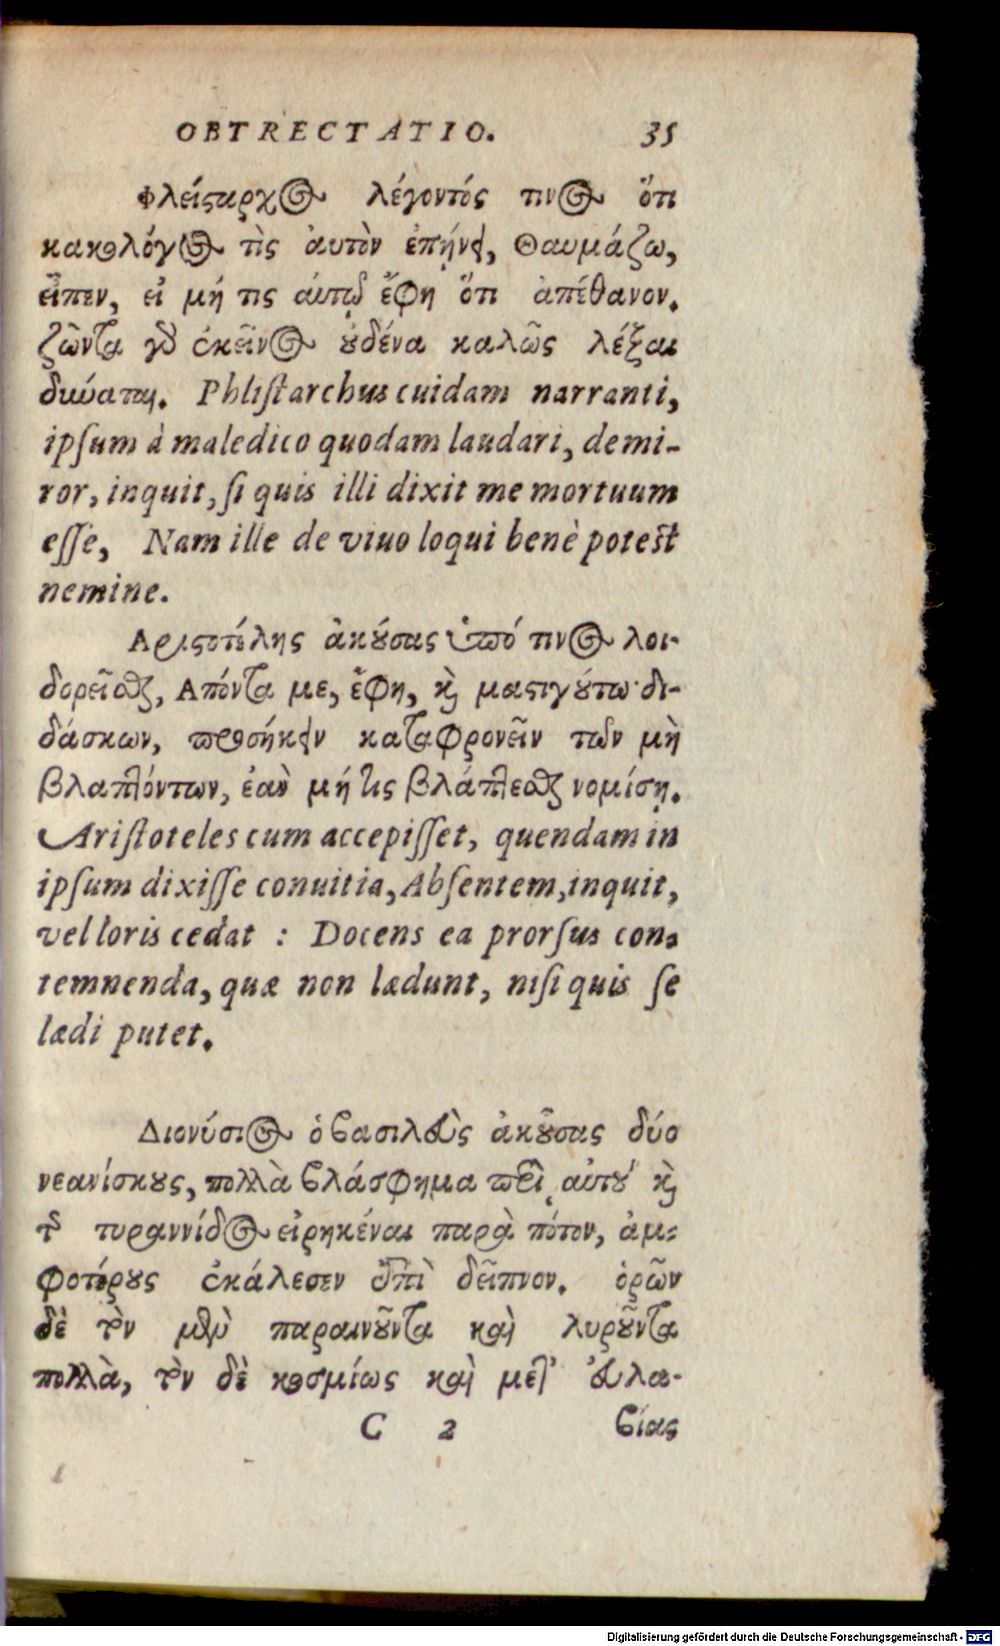 OBTRECTATIO. 35
Φλείσταρχος λέγοντός τινος ὅτι
κακολόγος τὶς ἀυτὸν ἐπῄνει, Θαυμάζω,
εἶπεν, εἰ μή τις ἀυτῷ ἔφη ὅτι ἀπέθανον.
ζῶντα γδ ἐκεῖνος ȣ̓δένα καλῶς λέξαι
δύναται. Phliſtarchus cuidam narranti,
ipſum à maledico quodam laudari, demi-
ror, inquit, ſi quis illi dixit me mortuum
eſſe, Nam ille de viuo loqui benè poteſt
nemine.
Αριστοτέλης ἀκȣ́σας ὑπό τινος λοι-
δορεῖσθαι, Απόντα με, ἔφη, καὶ μαστιγȣ́τω· δι-
δάσκων, προσήκειν καταφρονεῖν τῶν μὴ
βλαπτόντων, ἐὰν μή τις βλάπτεσθαι νομίσῃ.
Ariſtoteles cum accepiſſet, quendam in
ipſum dixiſſe conuitia, Abſentem, inquit,
vel loris cedat : Docens ea prorſus con-
temnenda, quæ non lædunt, niſi quis ſe
lædi putet.
Διονύσιος ὁ βασιλεὺς ἀκȣ́σας δύο
νεανίσκȣς, πολλὰ βλάσφημα περὶ αὐτȣ͂ καὶ
τ͂ τυραννίδος εἰρηκέναι παρὰ πότον, ἀμ-
φοτέρȣς ἐκάλεσεν ἐπὶ δεῖπνον. ὁρῶν
δὲ τὸν μὲν παραινȣ͂ντα καὶ λυρȣ͂ντα
πολλὰ, τὸν δὲ κοσμίως καὶ μετ᾽ εὐλα-
C 2 βίας
Digitalisierung gefördert durch die Deutsche Forschungsgemeinschaft - DFG